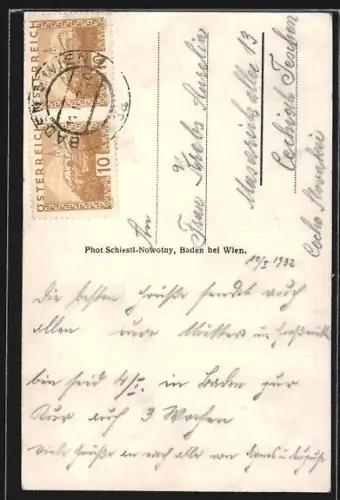 ÖSTERREICH
10
ÖSTERREICH
10
BADEN WIEN
An
Frau Krebs Aurelia
Masarykallee 13
Čechisch Teschen
Čecho Slovakei
Phot. Schiestl-Nowotny, Baden bei Wien.
10/I 1932
Die besten Grüße sendet auch
allen eure Mutter u. Großmutter
bin seid 4/I. in Baden zur
Kur auf 3 Wochen
viele Grüße an euch alle von Hans u.